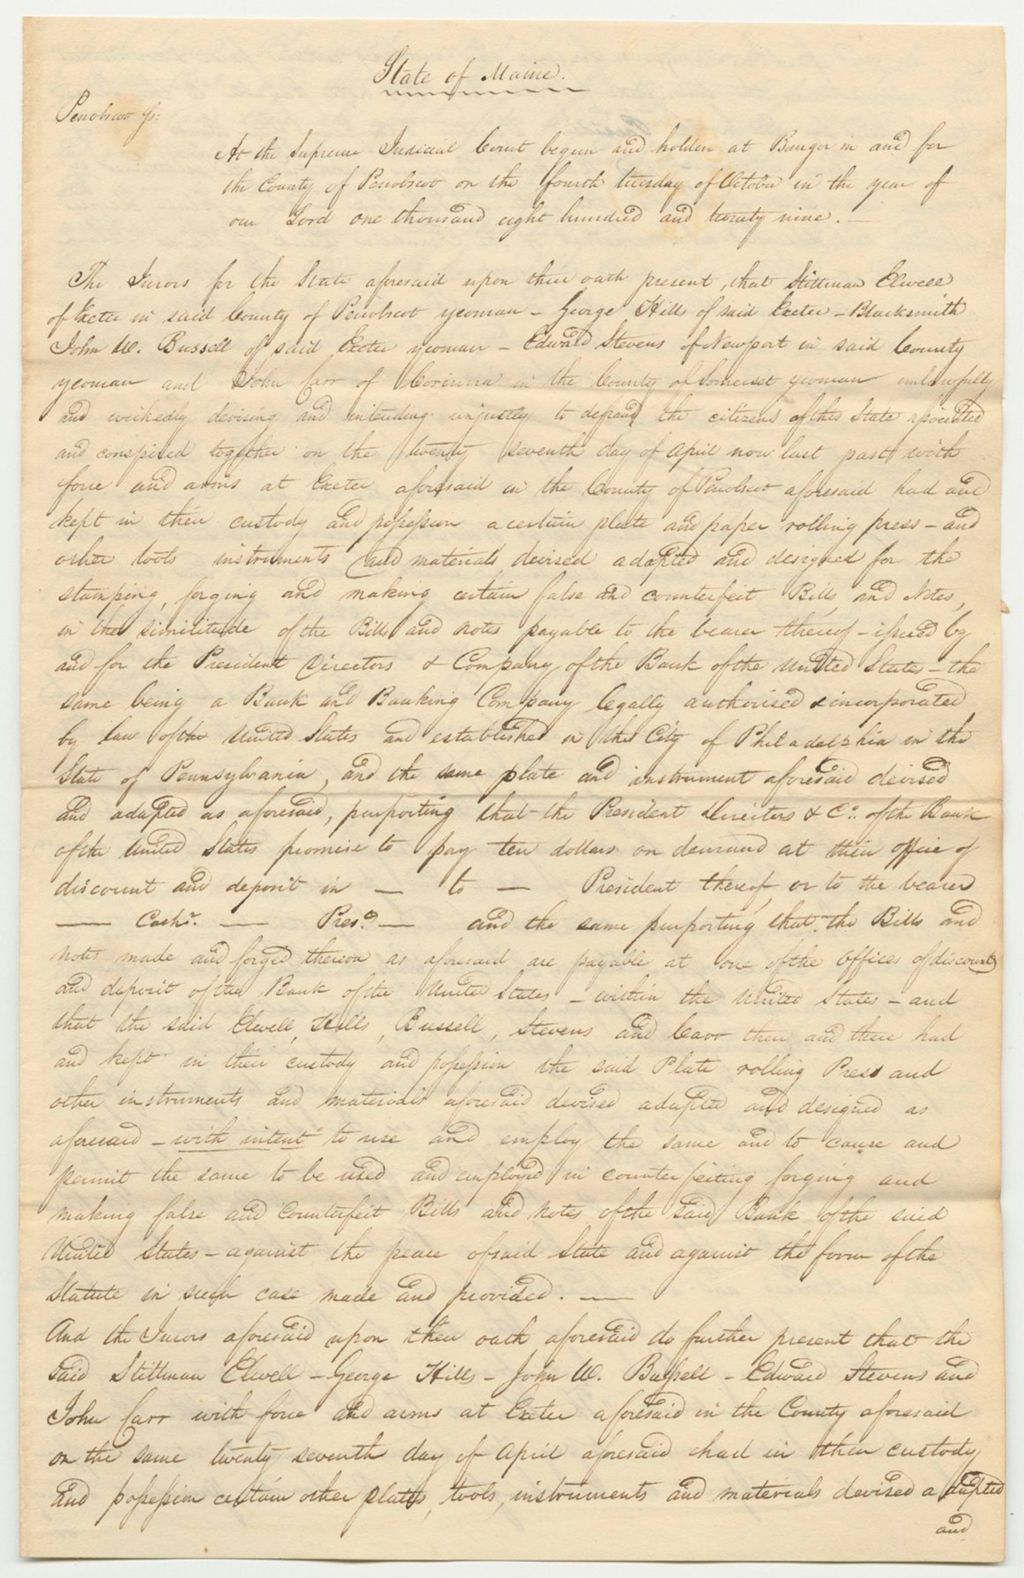 State of Maine.
Penobscot ss:
At the Supreme Judicial Court begun and holden at Bangor in and for
the County of Penobscot on the fourth tuesday of October in the year of
our Lord one thousand eight hundred and twenty nine. —
The Jurors for the State aforesaid upon their oath present, that Stillman Elwell
of Exeter in said County of Penobscot yeoman – George Hills of said Exeter – Blacksmith
John W. Bussell of said Exeter yeoman – Edward Stevens of Newport in said County
yeoman and John Carr of Corinna in the County of Somerset yeoman unlawfully
and wickedly devising and intending unjustly to defraud the citizens of this State associated
and conspired together on the twenty seventh day of April now last past with
force and arms at Exeter aforesaid in the County of Penobscot aforesaid had and
kept in their custody and possession a certain plate and paper rolling press – and
other tools instruments and materials devised adapted and designed for the
stamping, forging and making certain false and counterfeit Bills and Notes,
in the similitude of the Bills and notes payable to the bearer thereof – issued by
and for the President Directors & Company of the Bank of the United States – the
same being a Bank and Banking Company legally authorised & incorporated
by law of the United States and established in the City of Philadelphia in the
State of Pennsylvania, and the same plate and instrument aforesaid devised
and adapted as aforesaid, purporting that the President Directors & Co. of the Bank
of the United States promise to pay ten dollars on demand at their office of
discount and deposit in — to — President thereof, or to the bearer
— Cashr. — Presd. — and the same purporting that the Bills and
notes made and forged thereon as aforesaid are payable at one of the offices of discount
and deposit of the Bank of the United States – within the United States – and
that the said Elwell, Hills, Bussell, Stevens and Carr then and there had
and kept in their custody and possession the said Plate rolling Press and
other instruments and materials aforesaid devised adapted and designed as
aforesaid – with intent to use and employ the same and to cause and
permit the same to be used and employed in counterfeiting forging and
making false and Counterfeit Bills and notes of the said Bank of the said
United States – against the peace of said State and against the form of the
Statute in such case made and provided. —
And the Jurors aforesaid upon their oath aforesaid do further present that the
said Stillman Elwell – George Hills – John W. Bussell – Edward Stevens and
John Carr with force and arms at Exeter aforesaid in the County aforesaid
on the same twenty seventh day of April aforesaid had in their custody
and possession certain other plates, tools, instruments and materials devised adapted
and